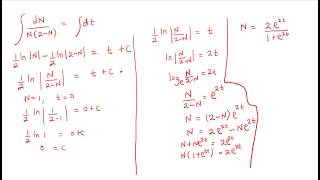 ∫ dN/N(2-N) = ∫dt
1/2 ln|N| - 1/2 ln|2-N| = t + C
1/2 ln|N/2-N| = t + C
N=1, t=0
1/2 ln|1/2-1| = 0+C
1/2 ln 1 = 0+C
0 = C
1/2 ln|N/2-N| = t
ln|N/2-N| = 2t
log_e N/2-N = 2t
N/2-N = e^2t
N = (2-N)e^2t
N = 2e^2t - Ne^2t
N+Ne^2t = 2e^2t
N(1+e^2t) = 2e^2t
N = 2e^2t/1+e^2t